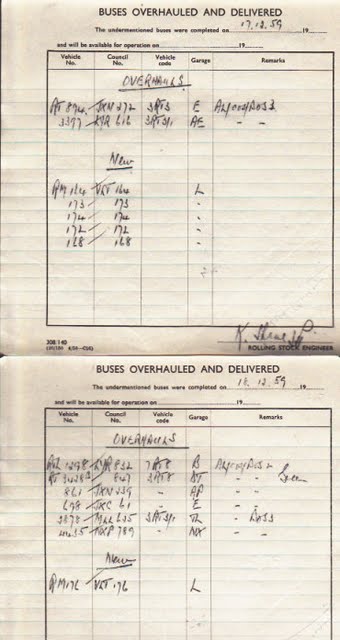 BUSES OVERHAULED AND DELIVERED
The undermentioned buses were completed on 17.12.59 19
and will be available for operation on 19
Vehicle No. Council No. Vehicle code Garage Remarks
OVERHAULS
RT 894 JXN 272 3RT3 E
3397 LYR 616 3RT3/1 AE " "
New
RM 164 VLT 164 L
173 173 "
174 174 "
172 172 "
168 168 "
308/140
ROLLING STOCK ENGINEER
BUSES OVERHAULED AND DELIVERED
The undermentioned buses were completed on 18.12.59 19
and will be available for operation on 19
Vehicle No. Council No. Vehicle code Garage Remarks
OVERHAULS
LYR 832 7RT8 B
847 3RT8
861 JXN 239 " AP " "
698 JXC 61 " E " "
3878 MLL 635 3RT3/1 TL "
NXP 789 " NX " "
New
RM 176 VLT 176 L